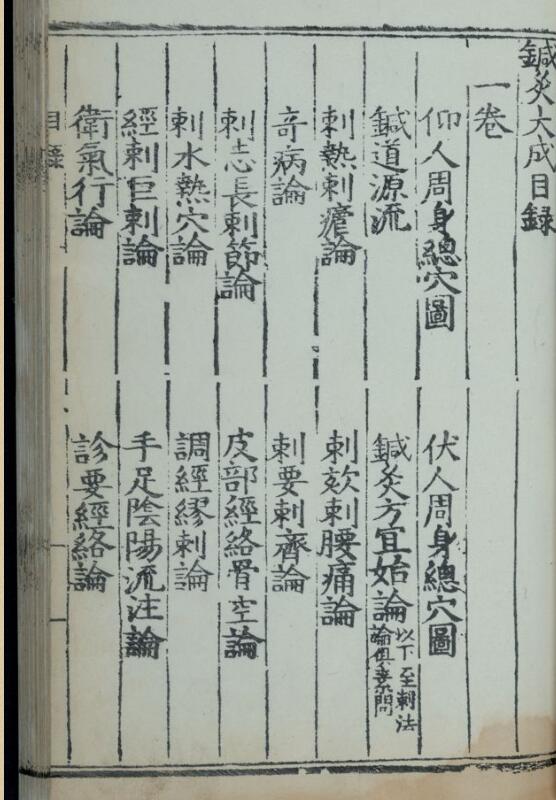 鍼灸大成目録
一卷
仰人周身總穴圖
伏人周身總穴圖
鍼道源流
鍼灸方宜始論 以下至刺法論俱素問
刺熱刺瘧論
刺欬刺腰痛論
奇病論
刺要刺齊論
刺志長刺節論
皮部經絡骨空論
刺水熱穴論
調經繆刺論
經刺巨刺論
手足陰陽流注論
衛氣行論
診要經絡論
目錄